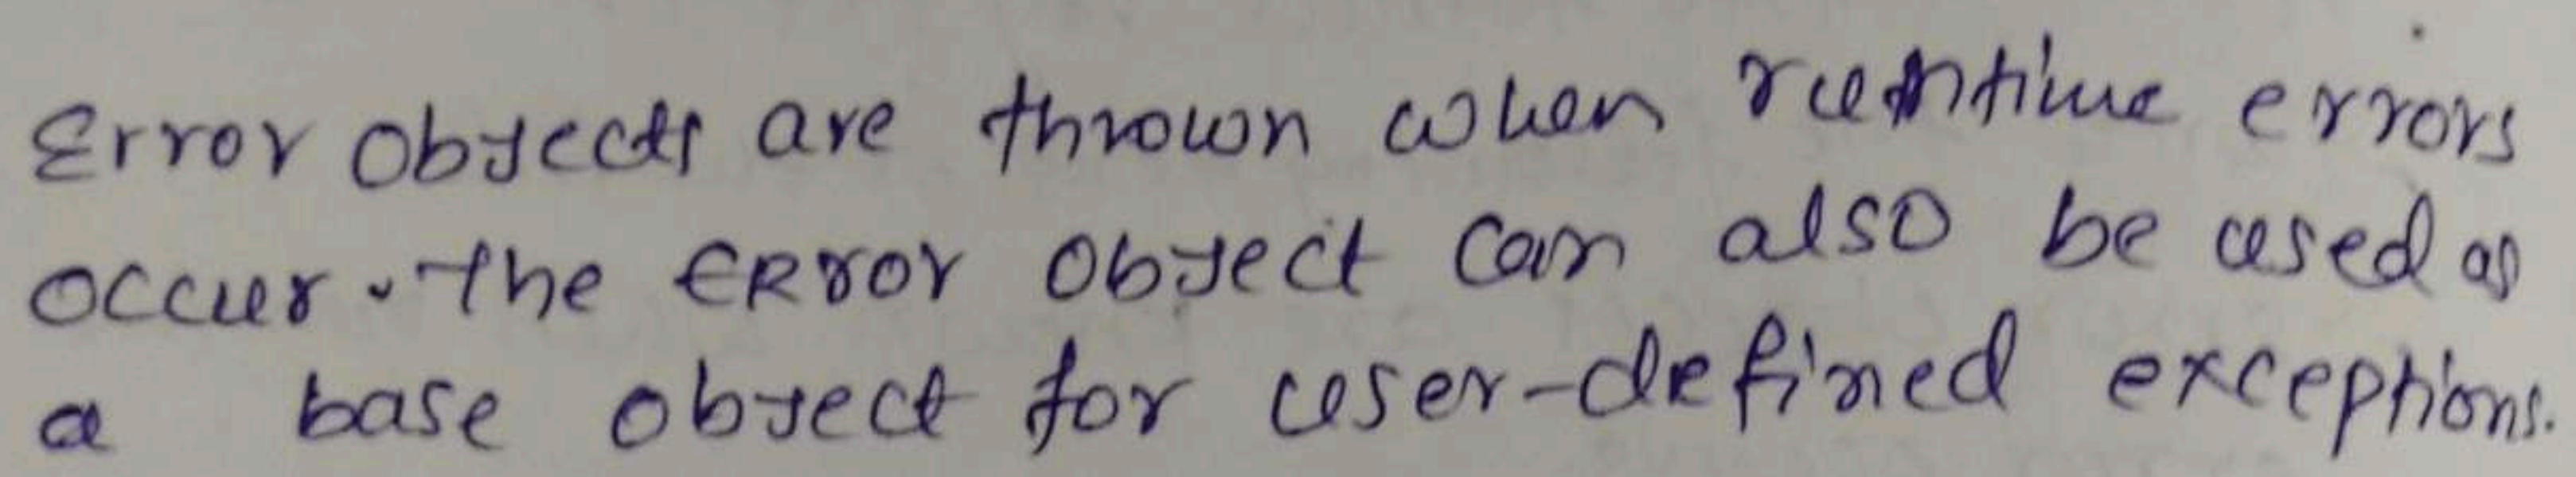 Error objects are thrown when runtime errors
occur. The Error object can also be used as
a base object for user-defined exceptions.